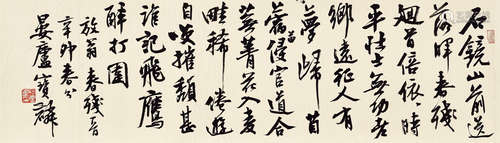 石鏡山前送
落暉春殘
迴首倍依依時
平壯士無功老
鄉遠征人有
夢歸苜
蓿苗侵官道合
蕪菁花入麥
畦稀倦遊
自笑摧頽甚
誰記飛鷹
醉打圍
放翁春殘
辛卯春分
晏廬寶麟